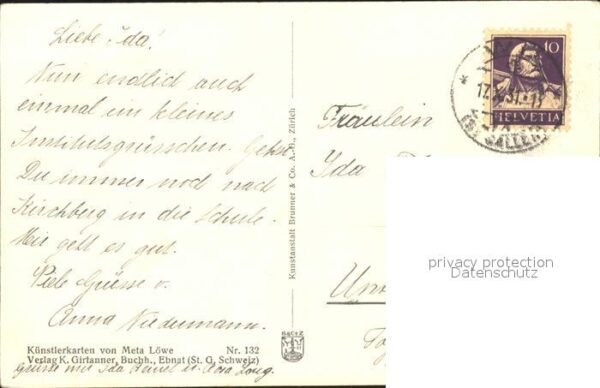 Liebe Ida!
Nun endlich auch
einmal ein kleines
Institutsgrüsschen. Gehst
Du immer noch nach
Kirchberg in die Schule.
Mir geht es gut.
Viele Grüsse v.
Anna Niedermann.
Künstlerkarten von Meta Löwe Nr. 132
Verlag K. Girtanner, Buchh., Ebnat (St. G. Schweiz)
Grüsse mir Ida u.
Kunstanstalt Brunner & Co. A.-G., Zürich
BRCZ
10
HELVETIA
(ST. GALLEN)
Fräulein
Ida
privacy protection
Datenschutz